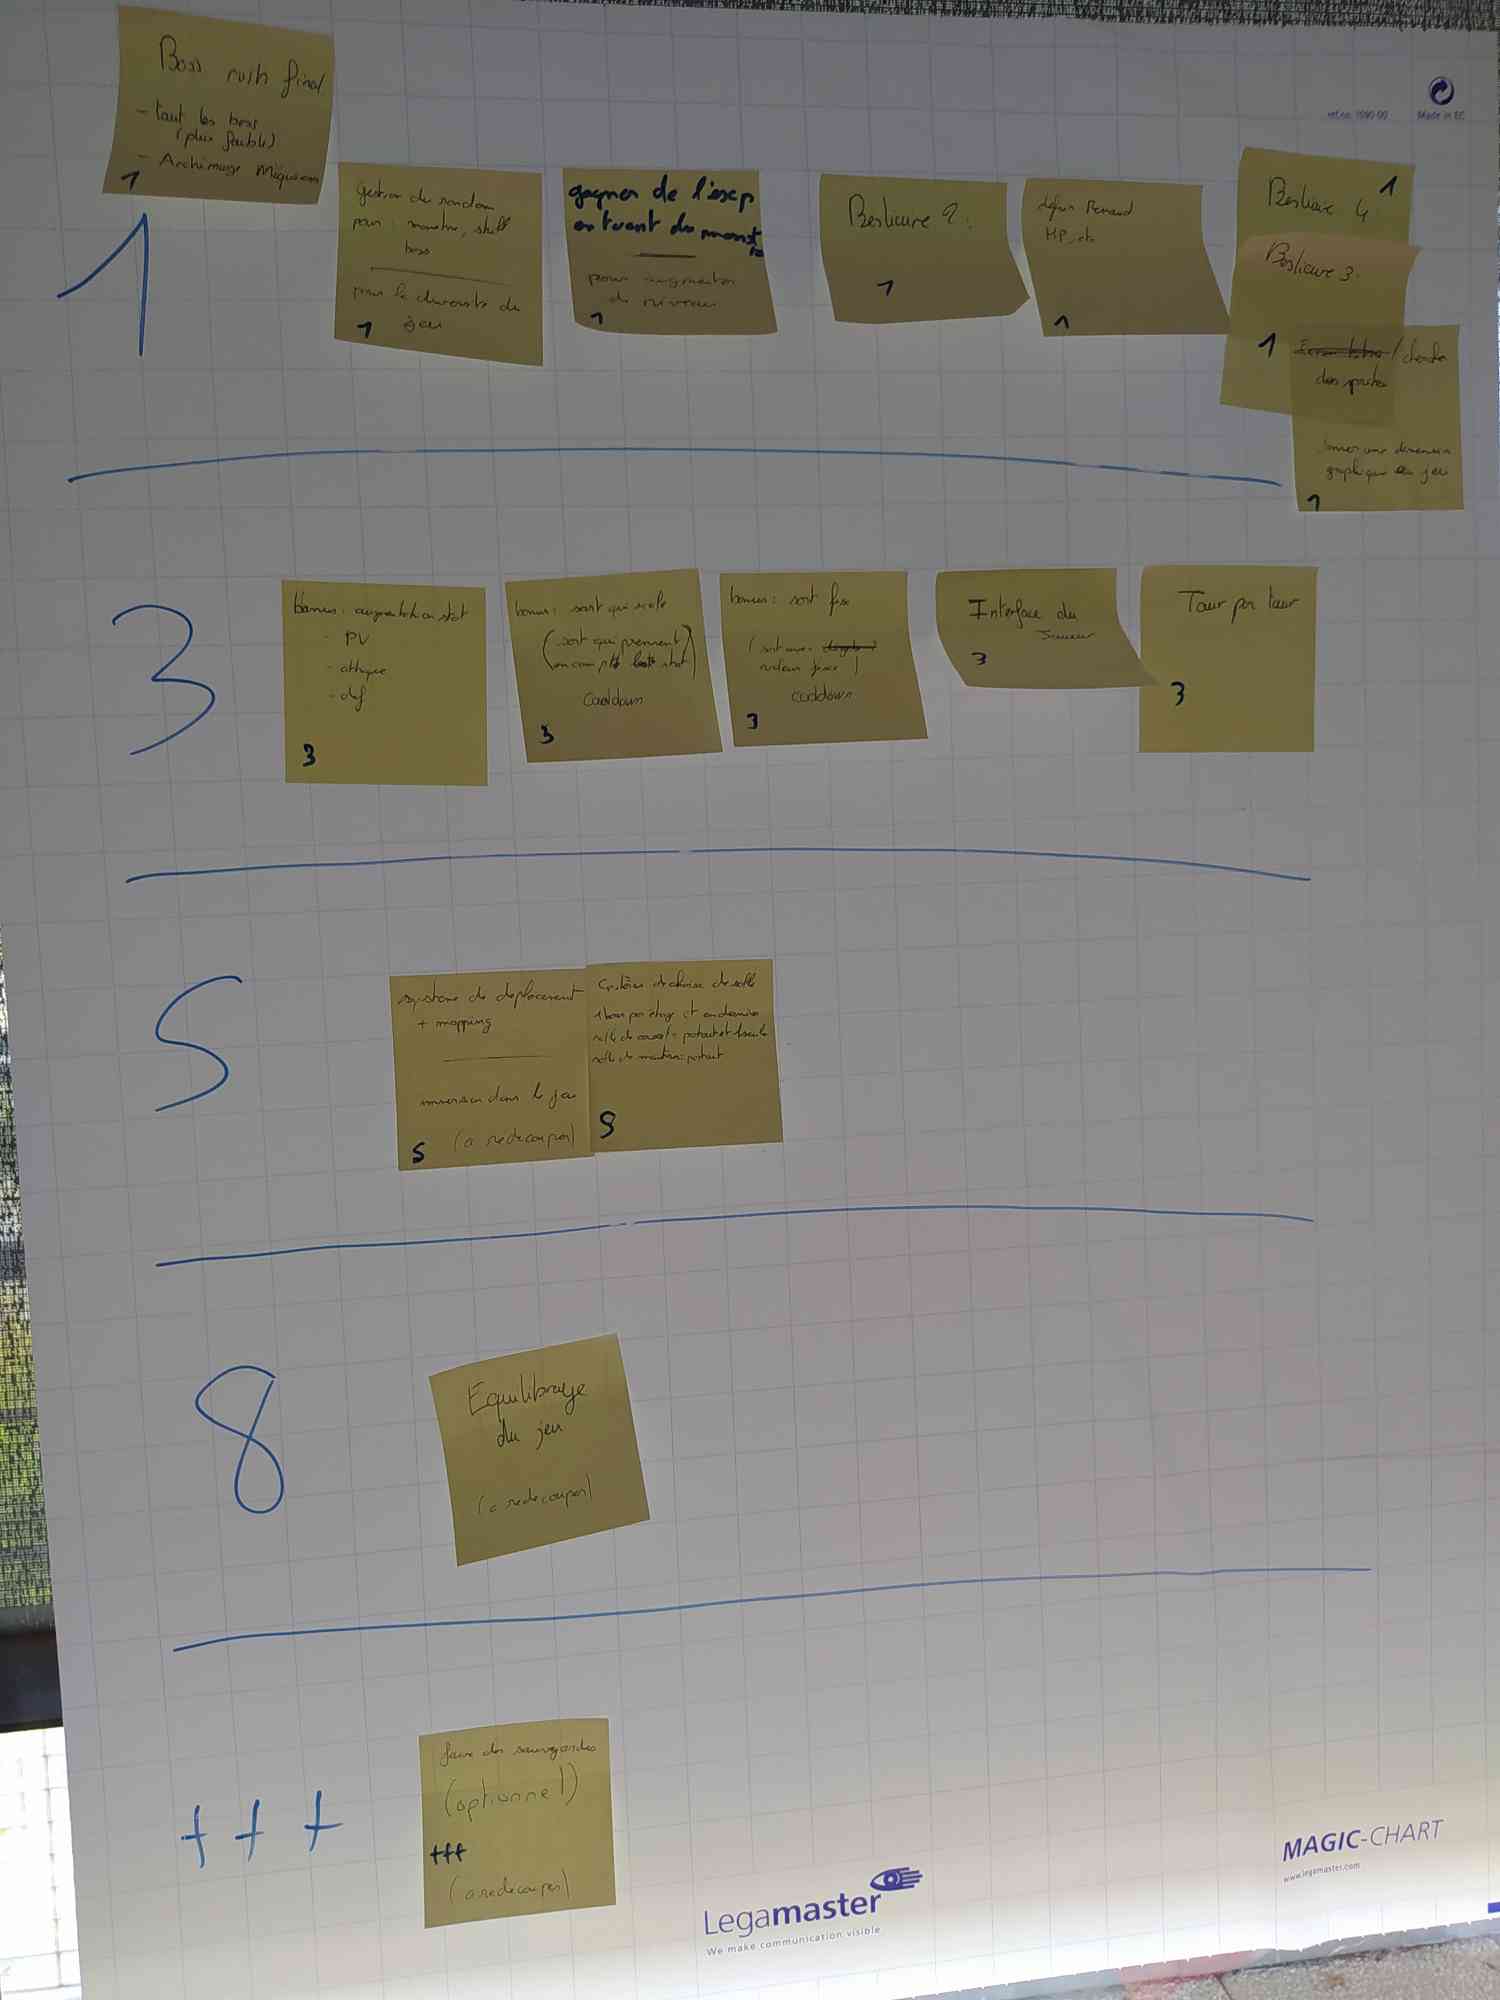 Boss rush final
- tout les boss
(plus faible)
- Archimage
1
1
Gestion du random
pour : monstre, skill
boss
pour la diversité du
jeu
1
gagner de l'exp
en tuant des monst
pour augmenter
de niveau
1
Bestiaire 2 :
1
définir Renaud
HP, etc
1
Bestiaire 4
1
Bestiaire 3.
1
/ chercher
des sprites
donner une dimension
graphique au jeu
1
ref.no. 1560 00
Made in EC
3
bonus : augmentation stat
- PV
- attaque
- def
3
bonus : sort qui scale
(sort qui prennent)
en compte stat)
Cooldown
3
bonus : sort fixe
(sort avec
valeur fixe)
cooldown
3
Interface du
Joueur
3
Tour par tour
3
5
système de déplacement
+ mapping
immersion dans le jeu
(a redecouper)
5
Critère de choix de salle
1 boss par étage et en dernier
salle de
salle de monstre : partout
5
8
Equilibrage
du jeu
(a redecouper)
+ + +
faire des sauvegardes
(optionnel)
+++
(a redecouper)
Legamaster
We make communication visible
MAGIC-CHART
www.legamaster.com